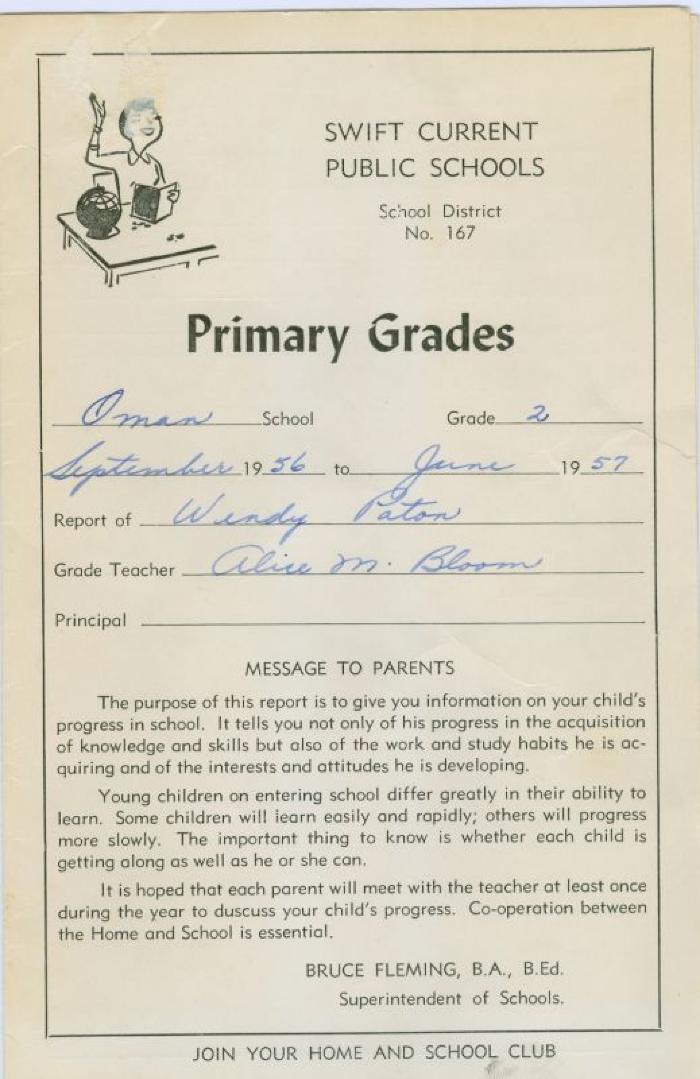 SWIFT CURRENT
PUBLIC SCHOOLS
School District
No. 167
Primary Grades
Oman School Grade 2
September 19 56 to June 19 57
Report of Wendy Paton
Grade Teacher Alice M. Bloom
Principal
MESSAGE TO PARENTS
The purpose of this report is to give you information on your child's
progress in school. It tells you not only of his progress in the acquisition
of knowledge and skills but also of the work and study habits he is ac-
quiring and of the interests and attitudes he is developing.
Young children on entering school differ greatly in their ability to
learn. Some children will learn easily and rapidly; others will progress
more slowly. The important thing to know is whether each child is
getting along as well as he or she can.
It is hoped that each parent will meet with the teacher at least once
during the year to duscuss your child's progress. Co-operation between
the Home and School is essential.
BRUCE FLEMING, B.A., B.Ed.
Superintendent of Schools.
JOIN YOUR HOME AND SCHOOL CLUB